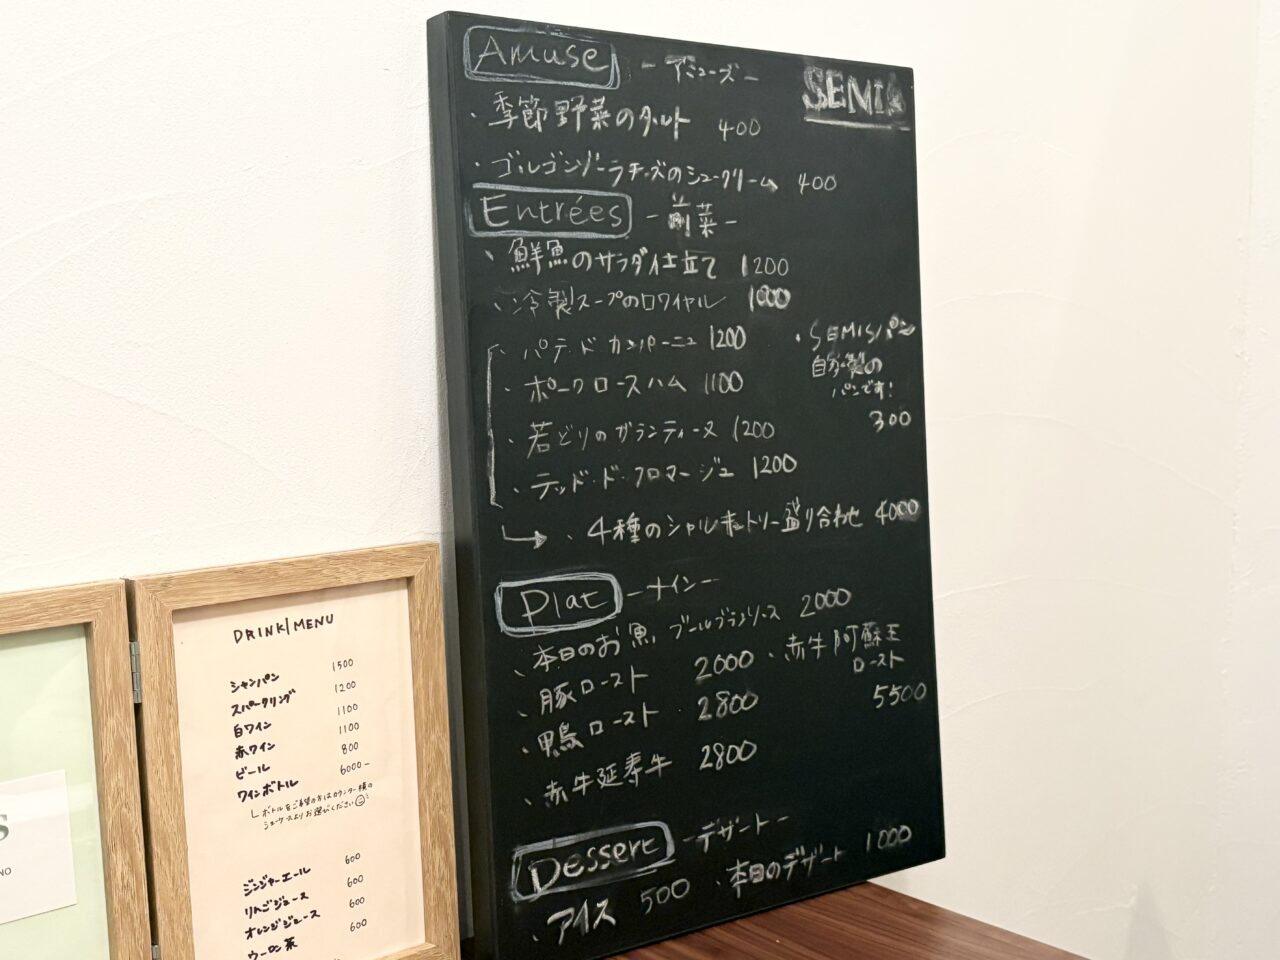 Amuse －アミューズ－
SEMIS
・季節野菜のタルト 400
・ゴルゴンゾーラチーズのシュークリーム 400
Entrées －前菜－
・鮮魚のサラダ仕立て 1200
・冷製スープのロワイヤル 1000
・パテ・ド カンパーニュ 1200
・ポークロースハム 1100
・若どりのガランティーヌ 1200
・テッド・ド・フロマージュ 1200
・4種のシャルキュトリー盛り合わせ 4000
・SEMISパン
自家製の
パンです!
300
Plat －メイン－
・本日のお魚 ブールブランソース 2000
・豚ロースト 2000
・鴨ロースト 2800
・赤牛延寿牛 2800
・赤牛阿蘇王
ロースト
5500
Dessert －デザート－
・アイス 500
・本日のデザート 1000
DRINK/MENU
シャンパン 1500
スパークリング 1200
白ワイン 1100
赤ワイン 1100
ビール 800
ワインボトル 6000－
└ボトルをご希望の方はカウンター横の
ショーケースよりお選びください☺
ジンジャーエール 600
りんごジュース 600
オレンジジュース 600
ウーロン茶 600
S
NO